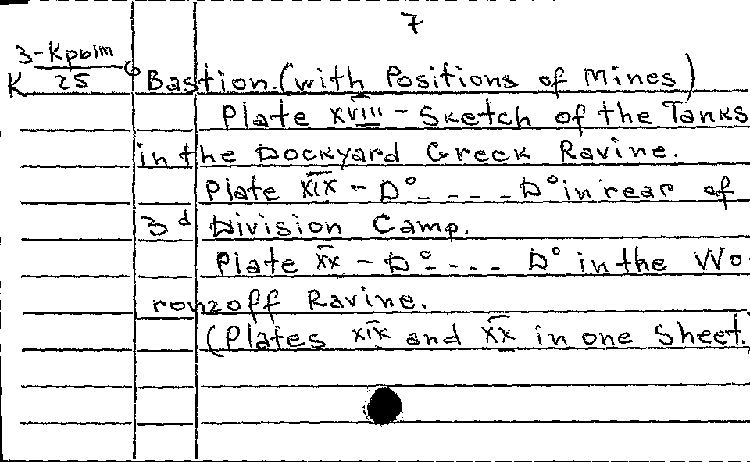 7
3-Крым
К 25 б
Bastion. (with Positions of Mines)
Plate XVIII - Sketch of the Tanks
in the Dockyard Creek Ravine.
Plate XIX - D° - - - - D° in rear of
3d Division Camp.
Plate XX - D° - - - D° in the Wo-
ronzoff Ravine.
(Plates XIX and XX in one Sheet.